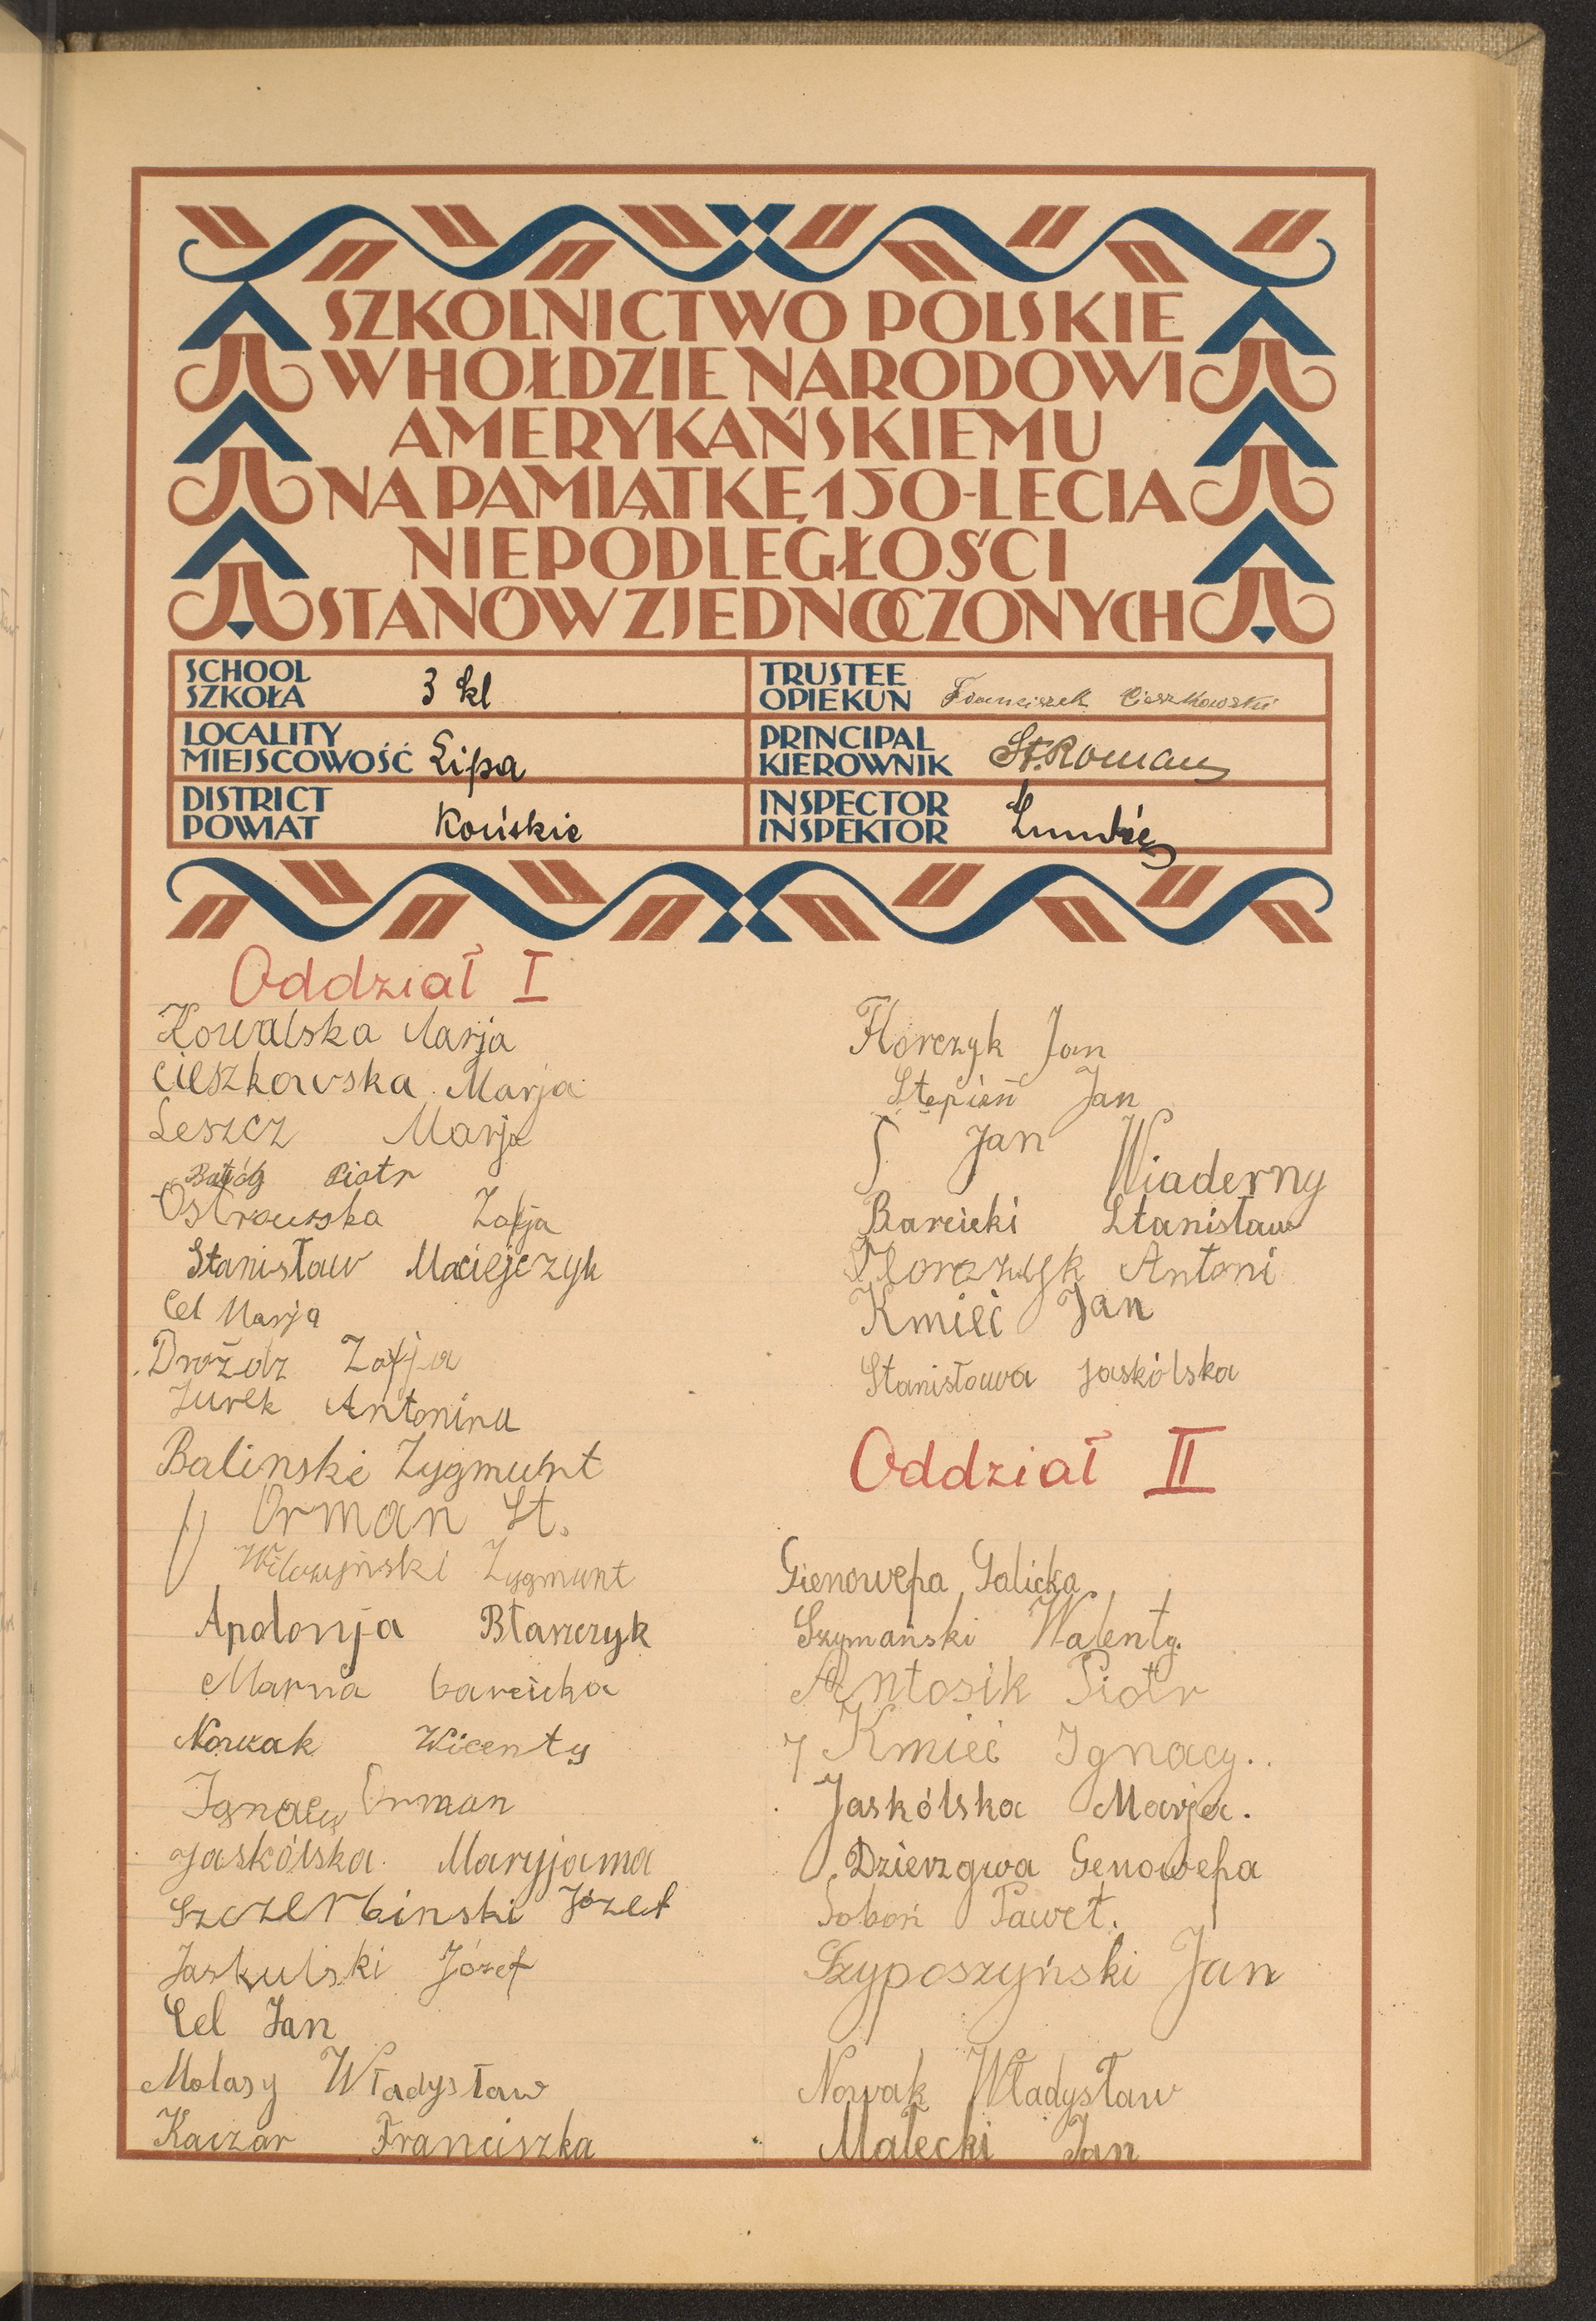 SZKOLNICTWO POLSKIE
W HOŁDZIE NARODOWI
AMERYKAŃSKIEMU
NA PAMIĄTKĘ 150-LECIA
NIEPODLEGŁOŚCI
STANÓW ZJEDNOCZONYCH
SCHOOL
SZKOŁA 3 kl
LOCALITY
MIEJSCOWOŚĆ Lipa
DISTRICT
POWIAT Końskie
TRUSTEE
OPIEKUN Franciszek Cieszkowski
PRINCIPAL
KIEROWNIK St. Roman
INSPECTOR
INSPEKTOR
Oddział I
Kowalska Marja
Cieszkowska Marja
Leszcz Marja
Batóg Piotr
Ostrowska Zofja
Stanisław Maciejczyk
Cel Marja
Drożdz Zofja
Jurek Antonina
Balinski Zygmunt
Orman St.
Wilczyński Zygmunt
Apolonja Błaszczyk
Marna barcicka
Nowak Wicenty
Ignacy Orman
Jaskólska Maryjama
Szczerbinski Józef
Jaskulski Józef
Cel Jan
Molasy Władysław
Kaczar Franciszka
Florczyk Jan
Stępień Jan
Jan Wiaderny
Barcicki Stanisław
Florczyk Antoni
Kmieć Jan
Stanisława Jaskólska
Oddział II
Gienowepa Galicka
Szymański Walenty.
Antosik Piotr
Kmieć Ignacy..
Jaskólska Marja.
Dzierzgwa Genowefa
Soboń Paweł.
Szyposzyński Jan
Nowak Władysław
Małecki Jan